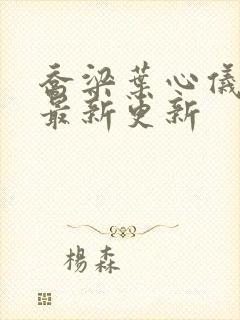 喬梁葉心儀
最新更新
楊森